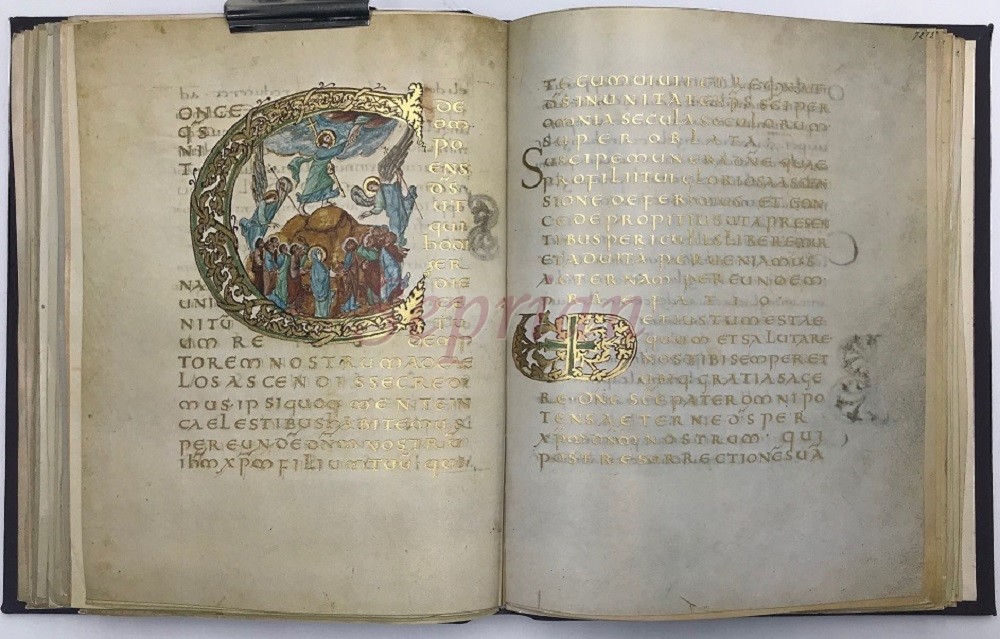 ONCE DE
QS OM
NI PO
T ENS
D̄S
UT
QUI
HODI
ER
NA DIE
UNI
NITŪ TU
UM RE DEMP
TOREM NOSTRUM AD CAE
LOS ASCENDISSE CREDI
MUS IPSI QUOQ MENTE IN
CAELESTIBUS HABITEMUS
PER EUNDĒ D̄N̄M NOSTRŪ
IH̄M XP̄M FILIUM TUŪ QUI
TE CUM UIUIT ET REGNAT
D̄S IN UNITATE SP̄S SC̄I PER
OMNIA SECULA SECULORUM
SUPER OBLATA
SUSCIPE MUNERA DN̄E QUAE
PRO FILII TUI GLORIOSA ASCEN
SIONE DEFERIMUS ET CON
CEDE PROPITIUS UT A PRESEN
TIBUS PERICULIS LIBEREMUR
ET AD UITA PERUENIAMUS
AETERNAM PER EUNDEM
PRAEFATIO
UERE DIGNUM ET IUSTUM EST AE
QUUM ET SALUTARE
NOS TIBI SEMPER ET
UBIQ: GRATIAS AGE
RE DN̄E SC̄E PATER OMNIPO
TENS AETERNE D̄S PER
XP̄M DN̄M NOSTRUM QUI
POST RESURRECTIONĒ SUA